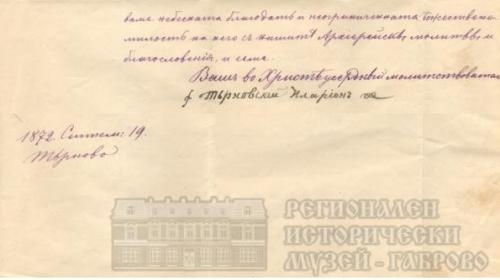 ваме небеската благодать и неограниченната Божественна
милость на него съ нашитѣ Архіерейскы молитвы и
благословенія, и сме.
Вашъ во Христѣ усердный молитствователь
† Търновскій Иларіонъ
1872. Септем: 19.
Търново
РЕГИОНАЛЕН
ИСТОРИЧЕСКИ
МУЗЕЙ - ГАБРОВО